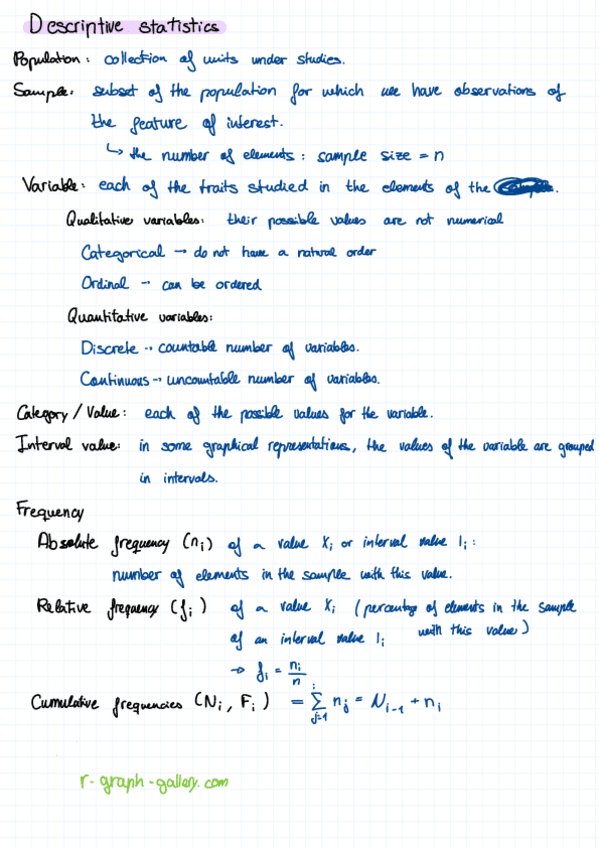 Descriptive statistics
Population: collection of units under studies.
Sample: subset of the population for which we have observations of
the feature of interest.
↳ the number of elements: sample size = n
Variable: each of the traits studied in the elements of the .
Qualitative variables: their possible values are not numerical
Categorical → do not have a natural order
Ordinal → can be ordered
Quantitative variables:
Discrete → countable number of variables.
Continuous → uncountable number of variables.
Category / Value: each of the possible values for the variable.
Interval value: in some graphical representations, the values of the variable are grouped
in intervals.
Frequency
Absolute frequency (nᵢ) of a value xᵢ or interval value Iᵢ:
number of elements in the sample with this value.
Relative frequency (fᵢ) of a value xᵢ (percentage of elements in the sample
of an interval value Iᵢ with this value)
→ fᵢ = nᵢ/n
Cumulative frequencies (Nᵢ, Fᵢ) = ∑ⁱⱼ₌₁ nⱼ = Nᵢ₋₁ + nᵢ
r-graph-gallery.com